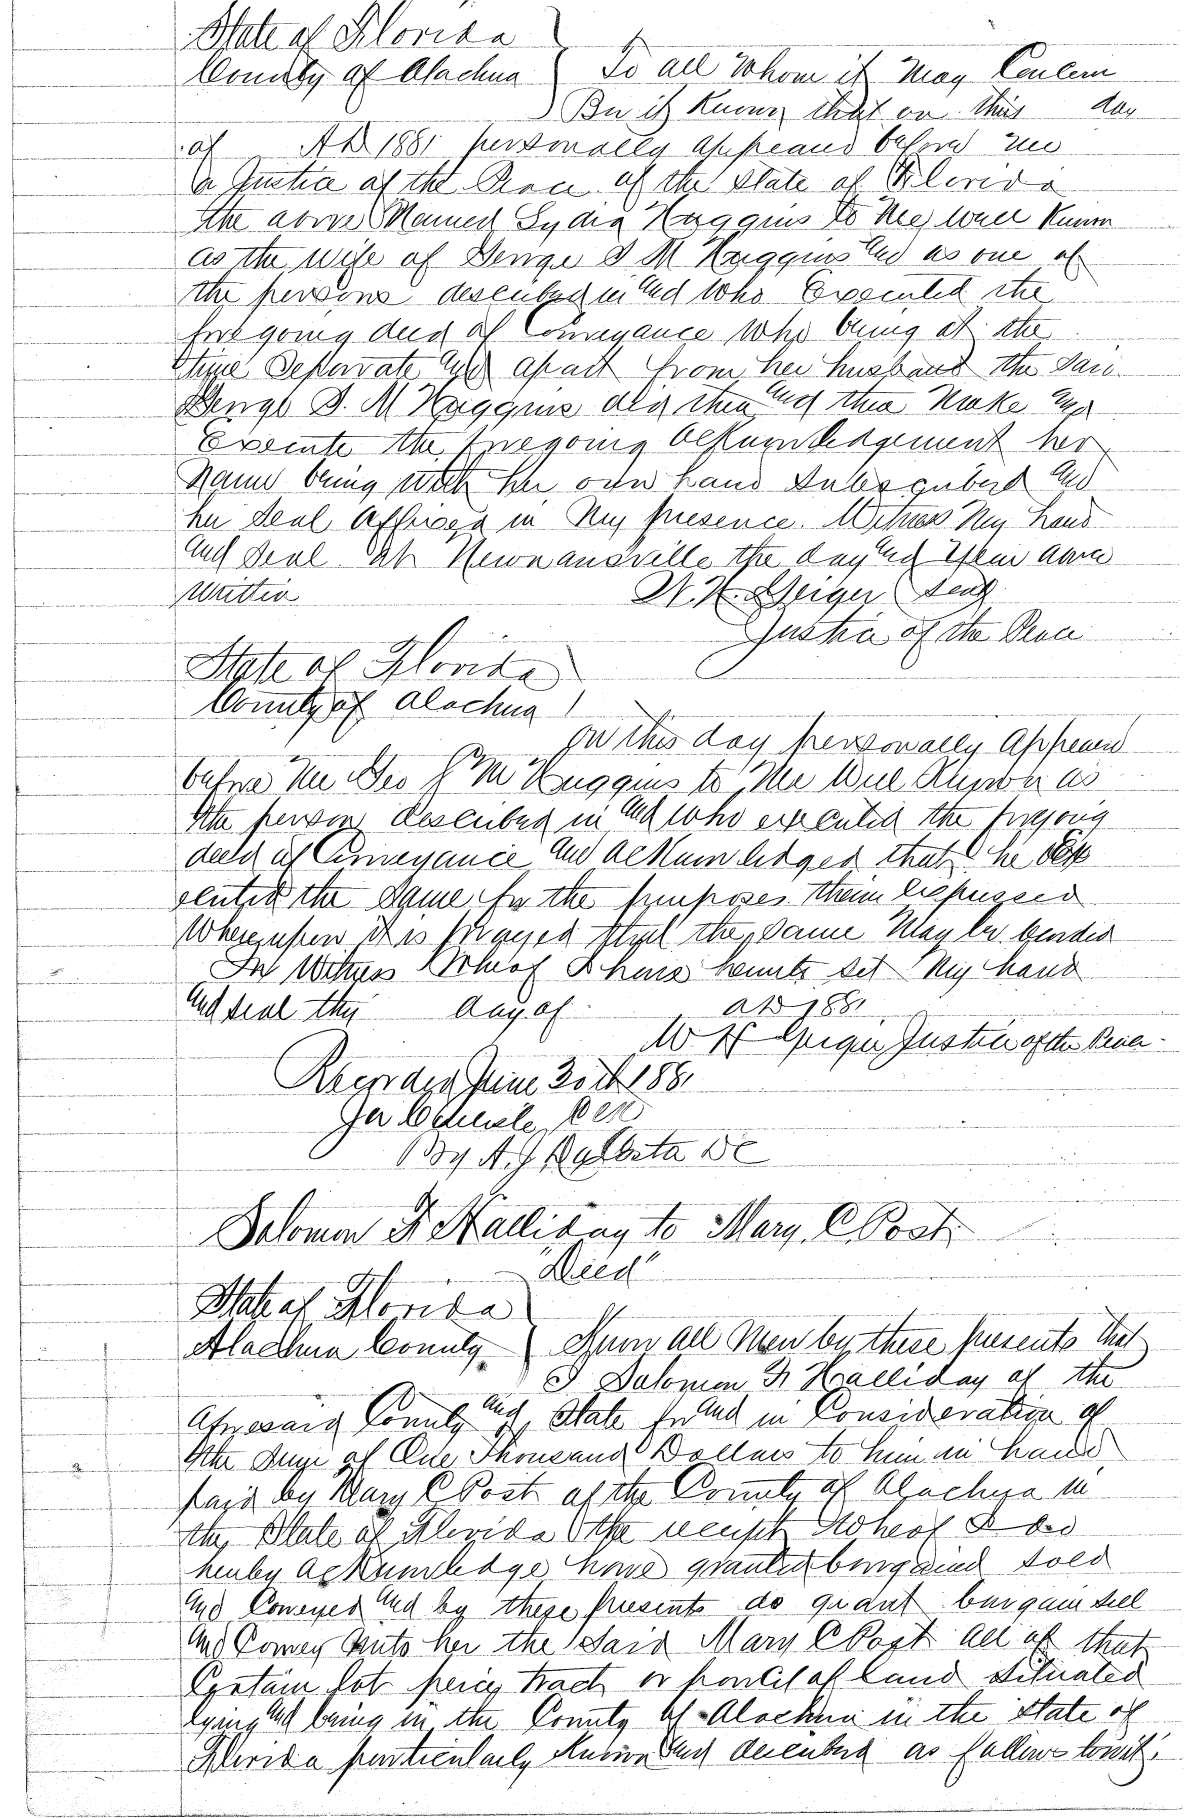 State of Florida
County of Alachua } To all Whom it May Concern
Be it Known that on this day
of AD 1881 personally appeared before me
a Justice of the Peace of the State of Florida
the above Named Lydia Huggins to Me well Known
as the Wife of George S M Huggins and as one of
the persons described in and Who Executed the
foregoing deed of Conveyance Who being at the
time Separate and apart from her husband the said
George S. M Huggins did then and there Make and
Execute the foregoing Acknowledgement her
Name being with her own hand Subscribed and
her Seal Affixed in My presence. Witness My hand
and Seal at Newnansville the day and Year above
Written W. H. Geiger Seal
Justice of the Peace
State of Florida
County of Alachua
On this day personally Appeared
before Me Geo S M Huggins to Me Well Known as
the person described in and Who executed the foregoing
deed of Conveyance and acknowledged that he Ex
ecuted the Same for the purposes therein Expressed
Whereupon it is prayed that the same May be
In Witness Whereof I have hereunto set My hand
and seal this day of AD 1881
W H Geiger Justice of the Peace
Recorded June 30th 1881
By A. J. DC
Solomon F Halliday to Mary C Post
"Deed"
State of Florida
Alachua County } Know all Men by these presents that
I Solomon F Halliday of the
Aforesaid County and State for and in Consideration of
the Sum of One Thousand Dollars to him in hand
paid by Mary C Post of the County of Alachua in
the State of Florida the receipt Whereof I do
hereby acknowledge have granted bargained sold
and Conveyed and by these presents do grant bargain sell
and Convey unto her the Said Mary C Post all of that
Certain lot peice tract or parcel of land situated
lying and being in the County of Alachua in the State of
Florida particularly Known and described as follows towit: